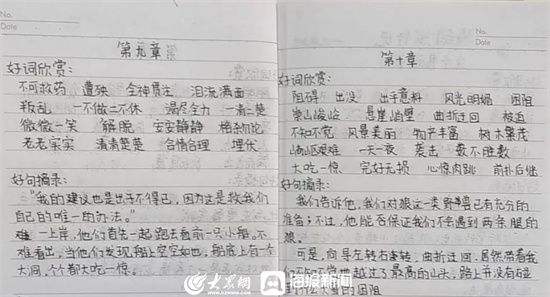 No.
Date
第九章
好词欣赏：
不可救药 遭殃 全神贯注 泪流满面
叛乱 一不做二不休 竭尽全力 一清二楚
微微一笑 解脱 安安静静 格杀勿论
老老实实 清清楚楚 合情合理 埋伏
好句摘录：
“我的建议也是出于不得已，因为是救我们
自己的唯一的办法。”
一上岸，他们首先一起跑去看前一只小船，不
难看出，当他们发现，船上空空如也，船底上有一个
大洞，个个都大吃一惊。
No.
Date
第十章
好词欣赏：
阻碍 出没 出乎意料 风光明媚 困阻
崇山峻岭 悬崖峭壁 曲折迂回 被迫
不知不觉 风景美丽 物产丰富 树木繁茂
崎岖艰难 一天一夜 袭击 数不胜数
大吃一惊 完好无损 心惊肉跳 前扑后继
好句摘录：
我们告诉他，我们对狼这一类野兽已有充分的
准备；不过，他能否保证我们不会遇到两条腿的
狼。
可是，向导左转右拐转，曲折迂回，居然带着我
们不知不觉地越过了最高的山头，路上并没有碰
到什么大雪的困阻
大众网
海报新闻